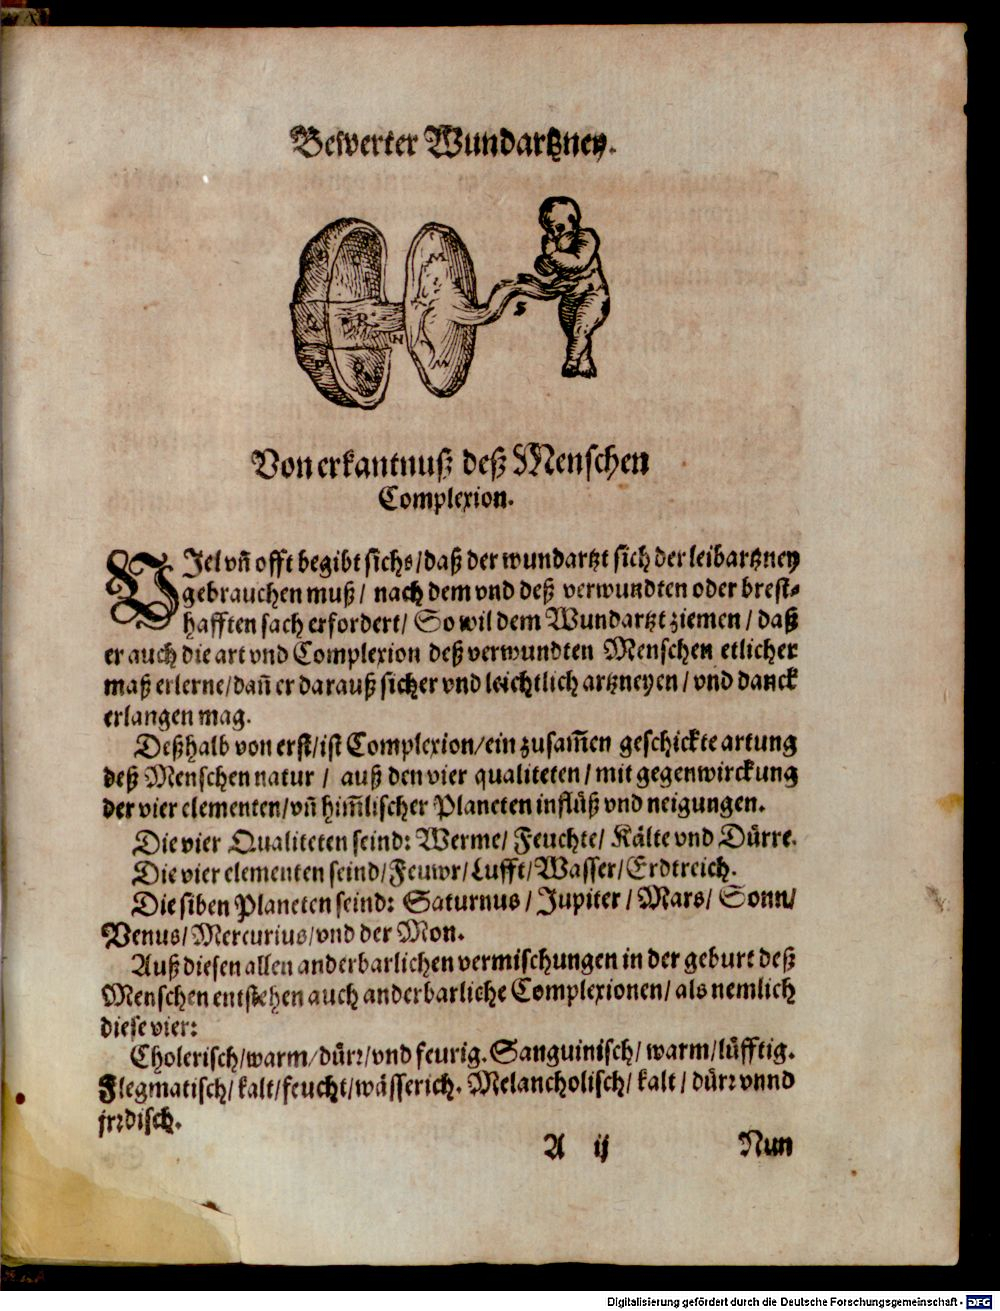 Bewerter Wundartzney.
M
N
S
Von erkantnuß deß Menschen
Complexion.
VJel vn̄ offt begibt sichs/daß der wundartzt sich der leibartzney
gebrauchen muß/ nach dem vnd deß verwundten oder brest-
hafften sach erfordert/ So wil dem Wundartzt ziemen/ daß
er auch die art vnd Complexion deß verwundten Menschen etlicher
maß erlerne/dan̄ er darauß sicher vnd leichtlich artzneyen/ vnd danck
erlangen mag.
Deßhalb von erst/ist Complexion/ein zusam̄en geschickte artung
deß Menschen natur/ auß den vier qualiteten/ mit gegenwirckung
der vier elementen/vn̄ him̄lischer Planeten inflüß vnd neigungen.
Die vier Qualiteten seind: Werme/ Feuchte/ Kälte vnd Du̇rre.
Die vier elementen seind/Feuwr/Lufft/Wasser/Erdtreich.
Die siben Planeten seind: Saturnus/ Jupiter/ Mars/ Sonn/
Venus/Mercurius/vnd der Mon.
Auß diesen allen anderbarlichen vermischungen in der geburt deß
Menschen entstehen auch anderbarliche Complexionen/ als nemlich
diese vier:
Cholerisch/warm/dürr/vnd feurig. Sanguinisch/ warm/lüfftig.
Flegmatisch/ kalt/feucht/wässerich. Melancholisch/ kalt/ dürr vnnd
jrrdisch.
A ij Nun
Digitalisierung gefördert durch die Deutsche Forschungsgemeinschaft - DFG